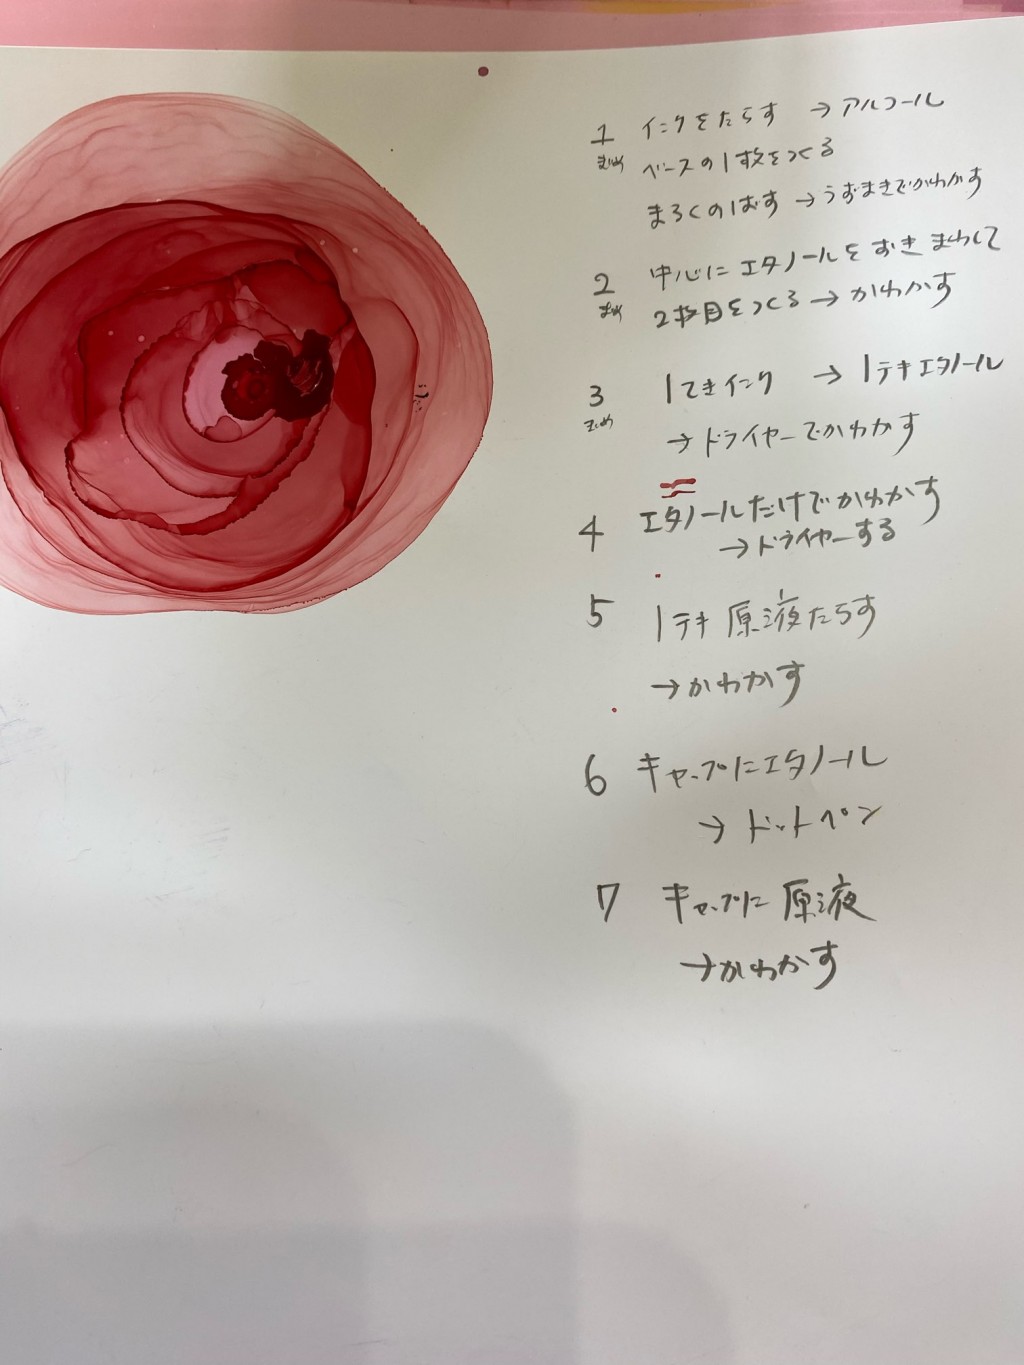 1 インクをたらす → アルコール
まとめ ベースの1枚をつくる
まるくのばす → うずまきでかわかす
2 中心にエタノールをおきまわして
まとめ 2枚目をつくる → かわかす
3 1てきインク → 1テキエタノール
まとめ → ドライヤーでかわかす
4 エタノールだけでかわかす
→ ドライヤーする
5 1テキ原液たらす
→ かわかす
6 キャップにエタノール
→ ドットペン
7 キャップに原液
→ かわかす